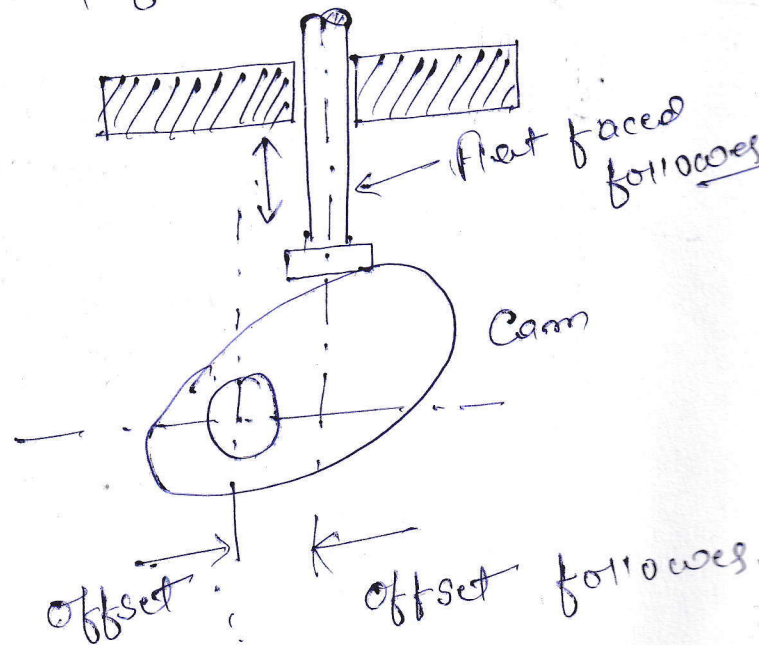 Flat faced
follower
Cam
Offset
Offset follower